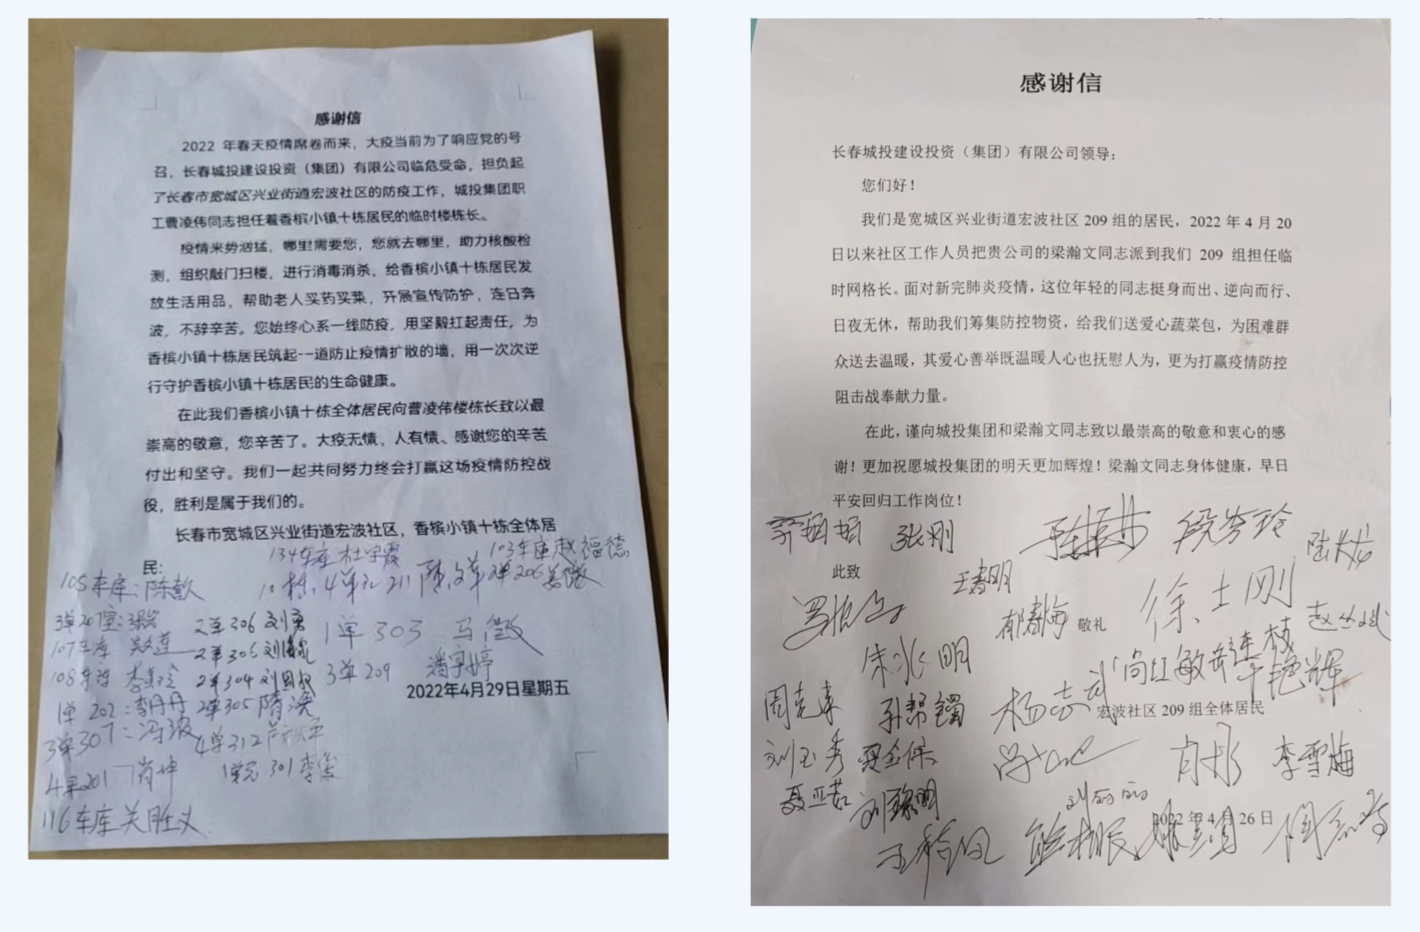 感谢信
2022 年春天疫情席卷而来，大疫当前为了响应党的号
召，长春城投建设投资（集团）有限公司临危受命，担负起
了长春市宽城区兴业街道宏波社区的防疫工作，城投集团职
工曹凌伟同志担任着香槟小镇十栋居民的临时楼栋长。
疫情来势汹猛，哪里需要您，您就去哪里，助力核酸检
测，组织敲门扫楼，进行消毒消杀，给香槟小镇十栋居民发
放生活用品，帮助老人买药买菜，开展宣传防护，连日奔
波，不辞辛苦。您始终心系一线防疫，用坚毅扛起责任，为
香槟小镇十栋居民筑起一道防止疫情扩散的墙，用一次次逆
行守护香槟小镇十栋居民的生命健康。
在此我们香槟小镇十栋全体居民向曹凌伟楼栋长致以最
崇高的敬意，您辛苦了。大疫无情，人有情、感谢您的辛苦
付出和坚守。我们一起共同努力终会打赢这场疫情防控战
役，胜利是属于我们的。
长春市宽城区兴业街道宏波社区，香槟小镇十栋全体居
民：
134车库 杜宇霞
103车库 赵福德
105车库：陈歆
10栋，4单元 211
2单206
3单201室：
2单306 刘勇
1单303 马微
107车库
2单305
3单209 潘宇婷
108车库
2单304
2022年4月29日星期五
1单202：李丹丹
2单305 隋
3单307：冯波
4单312
4单201 肖坤
1单元301
116车库 关胜义
感谢信
长春城投建设投资（集团）有限公司领导：
您们好！
我们是宽城区兴业街道宏波社区 209 组的居民，2022 年 4 月 20
日以来社区工作人员把贵公司的梁瀚文同志派到我们 209 组担任临
时网格长。面对新完肺炎疫情，这位年轻的同志挺身而出、逆向而行、
日夜无休，帮助我们筹集防控物资，给我们送爱心蔬菜包，为困难群
众送去温暖，其爱心善举既温暖人心也抚慰人为，更为打赢疫情防控
阻击战奉献力量。
在此，谨向城投集团和梁瀚文同志致以最崇高的敬意和衷心的感
谢！更加祝愿城投集团的明天更加辉煌！梁瀚文同志身体健康，早日
平安回归工作岗位！
张刚
段芳玲
此致
王春明
郁春梅
敬礼
徐士刚
朱兆明
尚红敏
艳辉
周克来
孙帮
杨志武
宏波社区 209 组全体居民
刘玉秀
肖彬
李雪梅
聂亚茹
2022 年 4 月 26 日